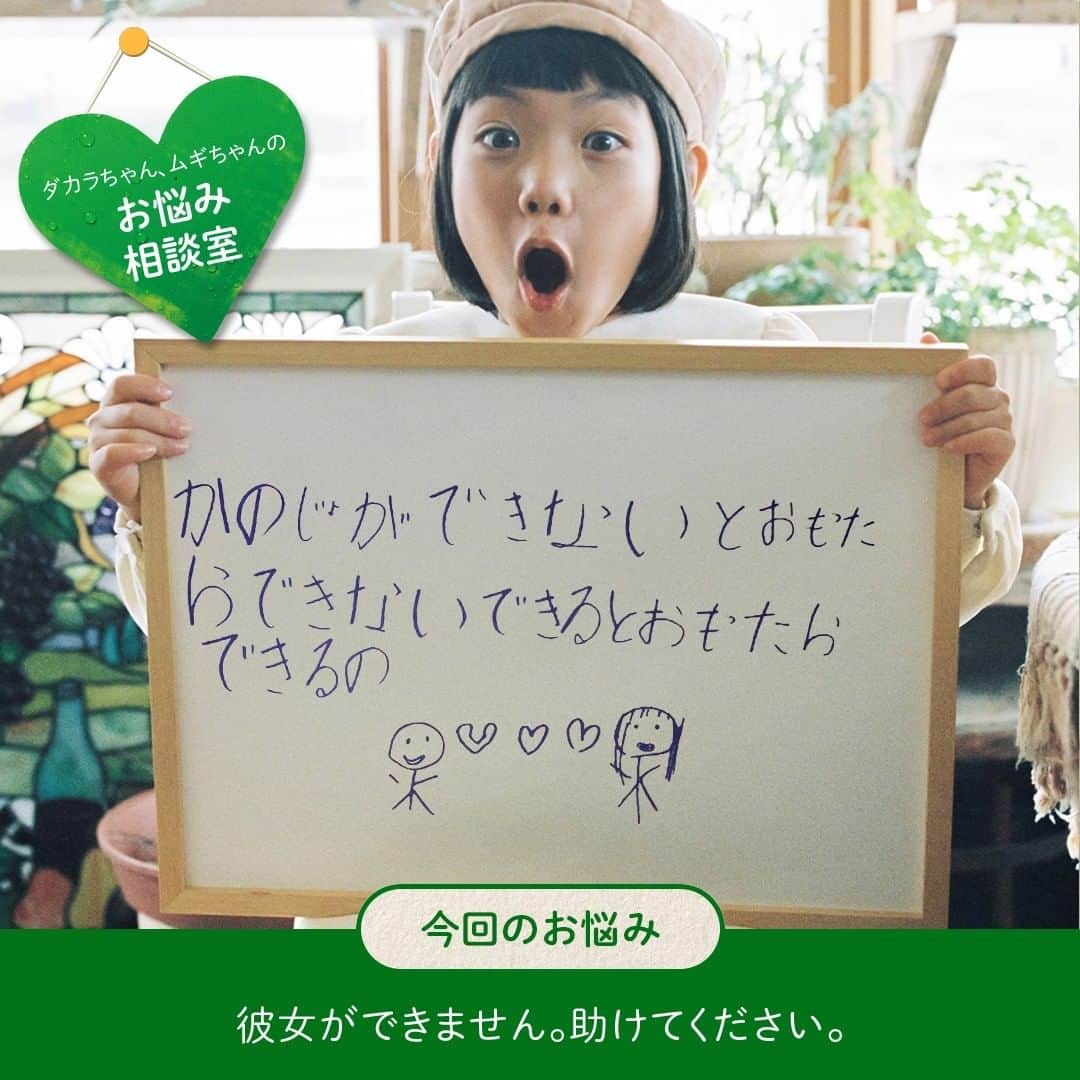 ダカラちゃん、ムギちゃんの
お悩み
相談室
かのじょができないとおもた
らできないできるとおもたら
できるの
今回のお悩み
彼女ができません。助けてください。